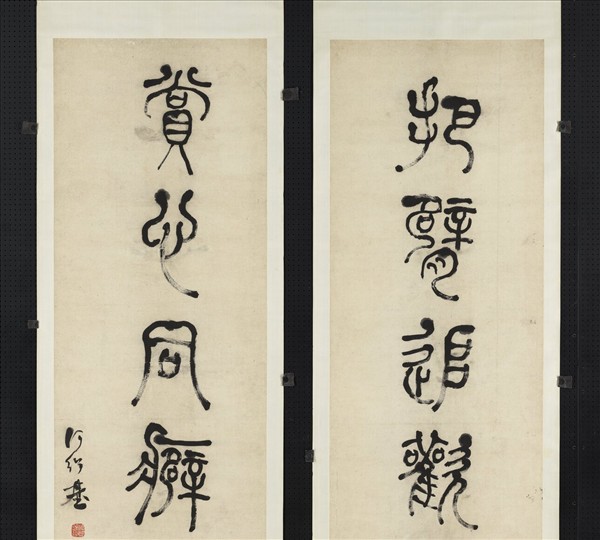 把臂追歡
賞心同癖
何紹基